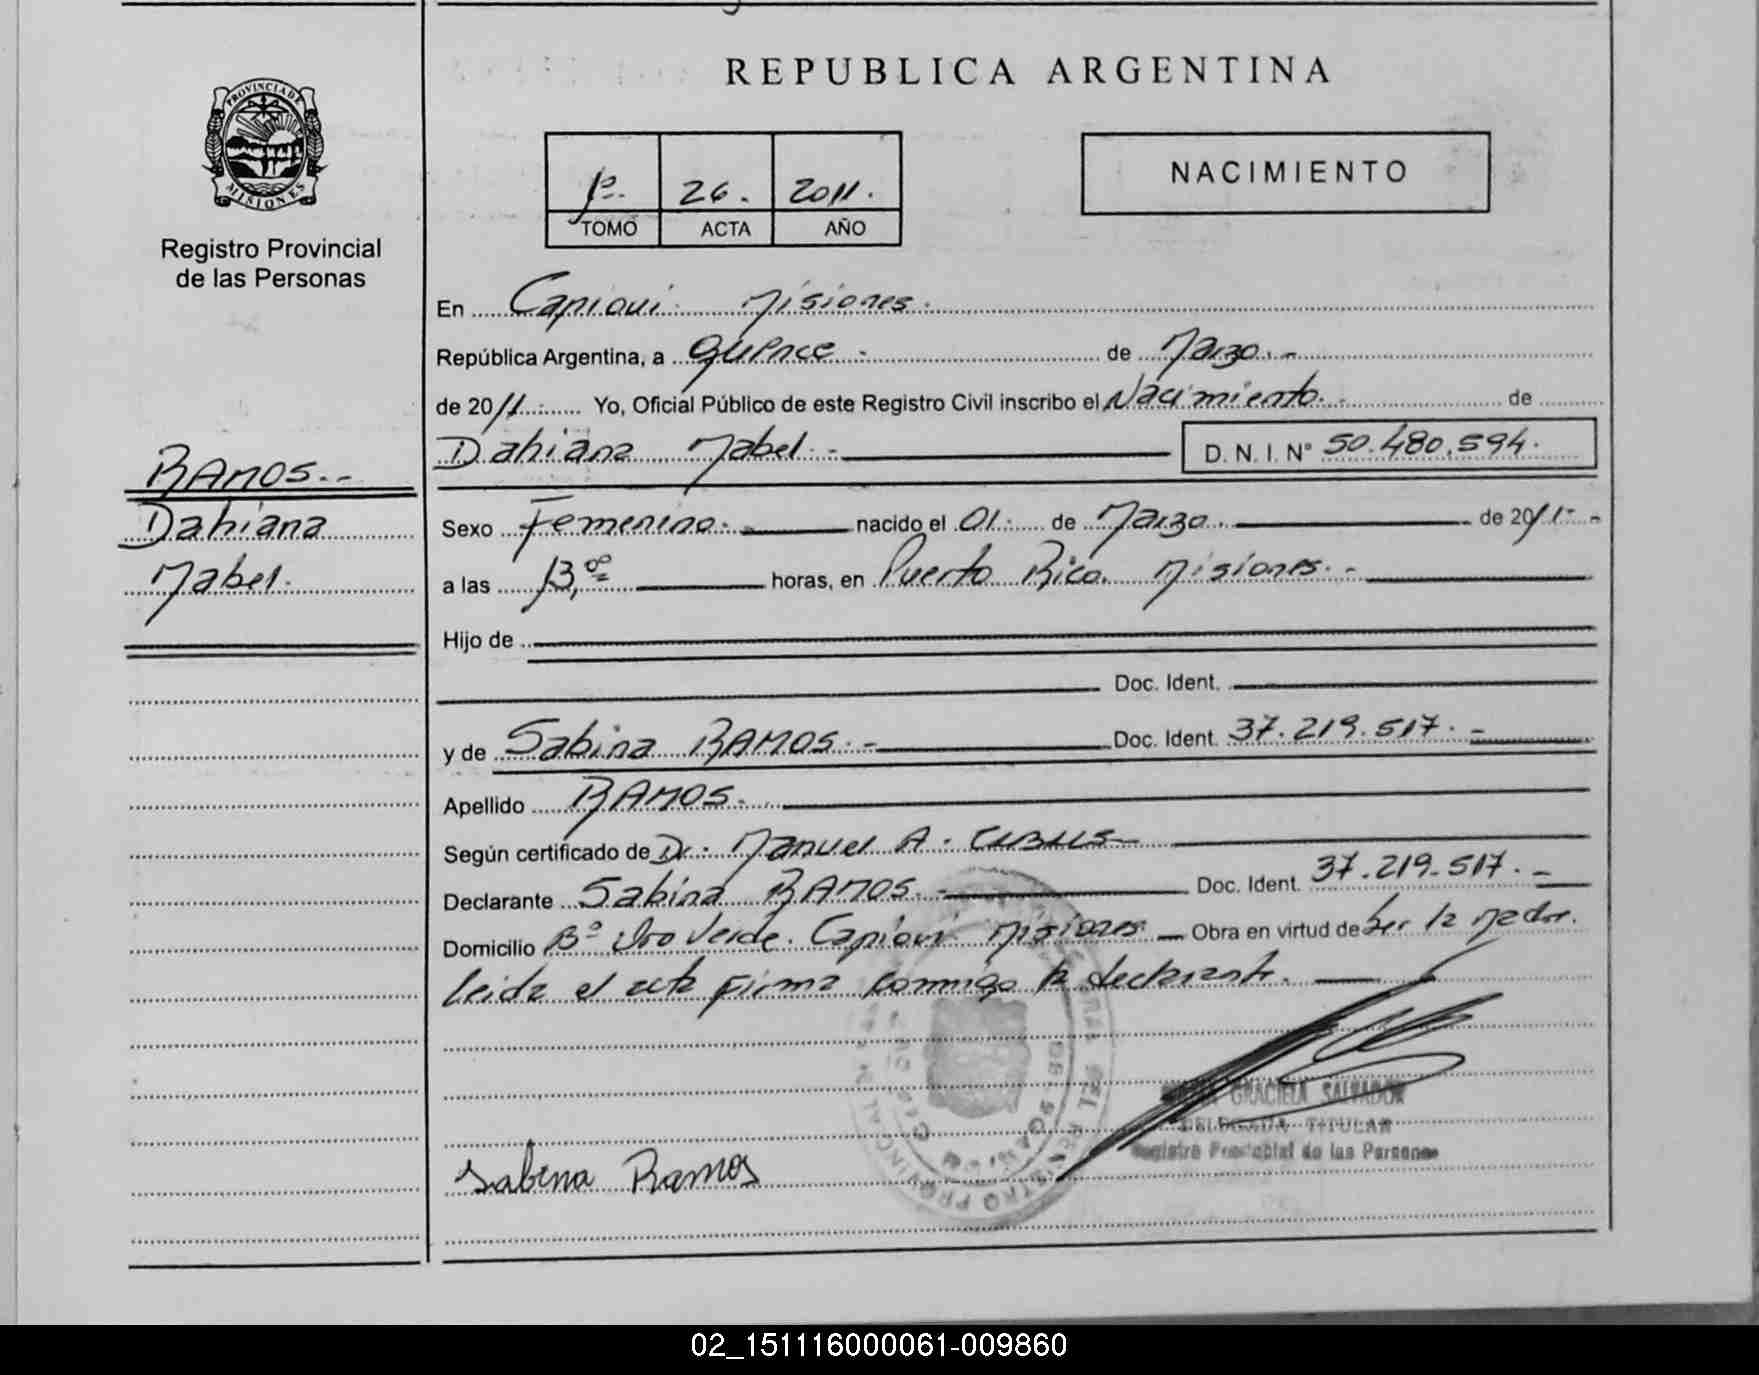 REPUBLICA ARGENTINA
PROVINCIA DE
MISIONES
Registro Provincial
de las Personas
1º. 26. 2011.
TOMO ACTA AÑO
NACIMIENTO
En Capiovi Misiones.
República Argentina, a quince de Marzo.-
de 2011 Yo, Oficial Público de este Registro Civil inscribo el Nacimiento. de
Dahiana Mabel.- D. N. I. Nº 50.480.594.
RAMOS.--
Dahiana
Mabel.
Sexo Femenino.- nacido el 01 de Marzo. de 2011.-
a las 13,00 horas, en Puerto Rico. Misiones.-
Hijo de
Doc. Ident.
y de Sabina RAMOS.- Doc. Ident. 37.219.517.-
Apellido RAMOS.
Según certificado de Dr. Manuel A.
Declarante Sabina RAMOS.- Doc. Ident. 37.219.517.-
Domicilio Bº Oro Verde. Capiovi Misiones. Obra en virtud de Ser la Madre.
leida el acta firma conmigo la declarante.
GRACIELA SALVADOR
DELEGADA TITULAR
Registro Provincial de las Personas
Sabina Ramos
02_151116000061-009860